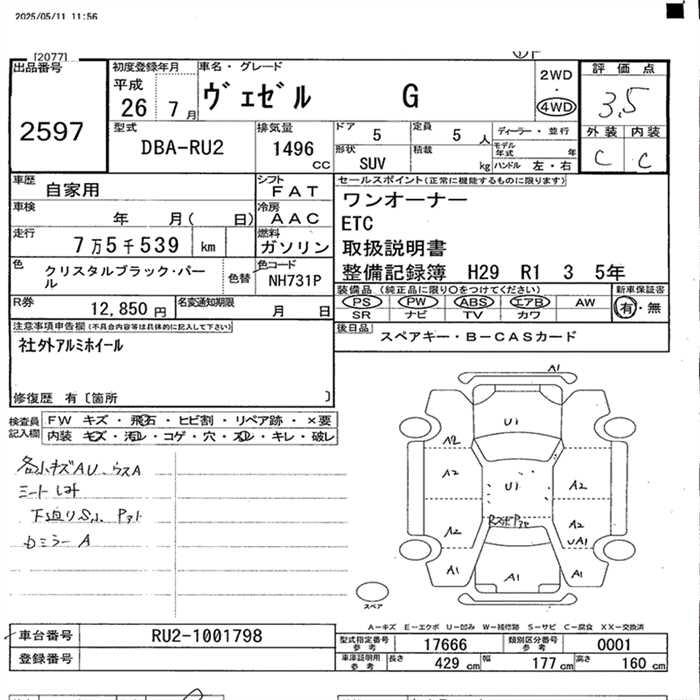 2025/05/11 11:56
[2077]
出品番号
2597
初度登録年月
平成
26 7月
車名・グレード
ヴェゼル G
2WD
・
4WD
評価点
3.5
外装 内装
C C
型式
DBA-RU2
排気量
1496
CC
ドア
5
定員
5 人
ディーラー・並行
モデル年式 年
形状
SUV
積載
kg
ハンドル 左・右
車歴
自家用
シフト
FAT
車検
年 月( 日)
冷房
AAC
走行
7万5千539 km
燃料
ガソリン
色
クリスタルブラック・パール
色替
色コード
NH731P
R券
12,850 円
名変通知期限
月 日
セールスポイント(正常に機能するものに限ります)
ワンオーナー
ETC
取扱説明書
整備記録簿 H29 R1 3 5年
装備品(純正品に限り○をつけてください)
PS PW ABS エアB AW
SR ナビ TV カワ
新車保証書
有・無
後日品
スペアキー・B-CASカード
注意事項申告欄(不具合内容等は具体的に記入して下さい)
社外アルミホイール
修復歴 有〔箇所 〕
検査員
記入欄
FW キズ・飛石・ヒビ割・リペア跡・×要
内装 キズ・汚れ・コゲ・穴・スレ・キレ・破レ
各小キズAU、ウスA
シートしみ
下廻りS小
カミラーA
A1
U1
A2
A2
U1
A2
A2
A2
UA1
A1
A1
A1
スペア
A-キズ E-エクボ U-凹み W-補修跡 S-サビ C-腐食 XX-交換済
車台番号
RU2-1001798
登録番号
型式指定番号
参考
17666
類別区分番号
参考
0001
車庫証明用
参考
長さ
429 cm
幅
177 cm
高さ
160 cm